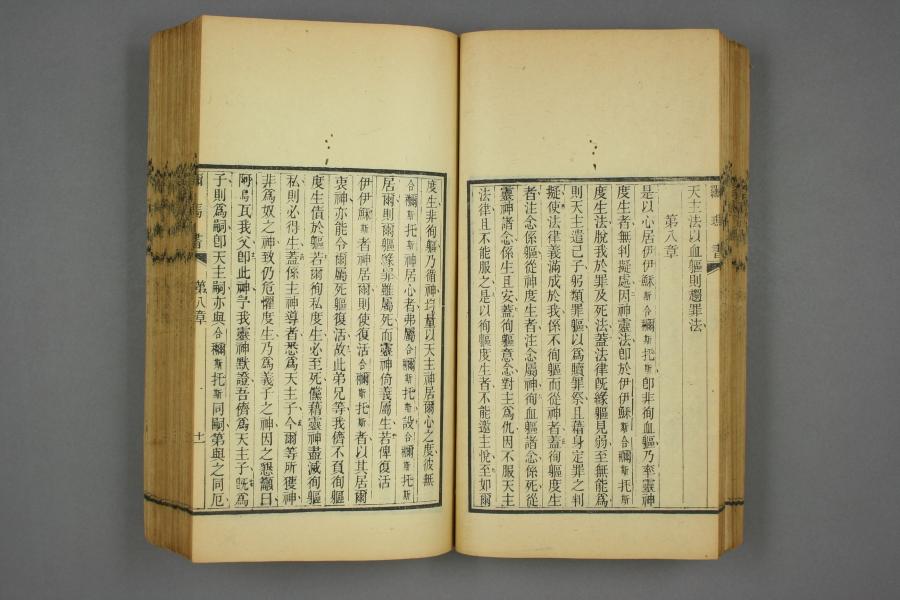 天主法以血軀則趨罪法
第八章
是以心居伊伊穌斯合禰斯托斯卽非徇血軀乃率靈神
度生者無判擬處因神靈法卽於伊伊穌斯合禰斯托斯
度生法脫我於罪及死法蓋法律旣緣軀見弱至無能爲
則天主遣己子躬類罪軀以爲贖罪祭且藉身定罪之判
擬使法律義滿成於我係不徇軀而從神者蓋徇軀度生
者注念係軀從神度生者注念屬神徇血軀諸念係死從
靈神諸念係生且安蓋徇軀意念對主爲仇因不服天主
法律且不能服之是以徇軀度生者不能邀主悅至如爾
度生非徇軀乃循神均量以天主神居爾心之度彼無
合禰斯托斯神居心者弗屬合禰斯托斯設合禰斯托斯
居爾則爾軀緣罪雖屬死而靈神倚義屬生若俾復活
伊伊穌斯者神居爾則使復活合禰斯托斯者以其居爾
衷神亦能令爾屬死軀復活故此弟兄等我儕不負徇軀
度生債於軀若爾徇私度生必至死儻藉靈神盡滅徇軀
私則必得生蓋係主神導者悉爲天主子今爾等所獲神
非爲奴之神致仍危懼度生乃爲義子之神因之懇籲曰
阿烏瓦我父卽此神予我靈神默證吾儕爲天主子旣爲
子則爲嗣卽天主嗣亦與合禰斯托斯同嗣第與之同厄
第八章
十一